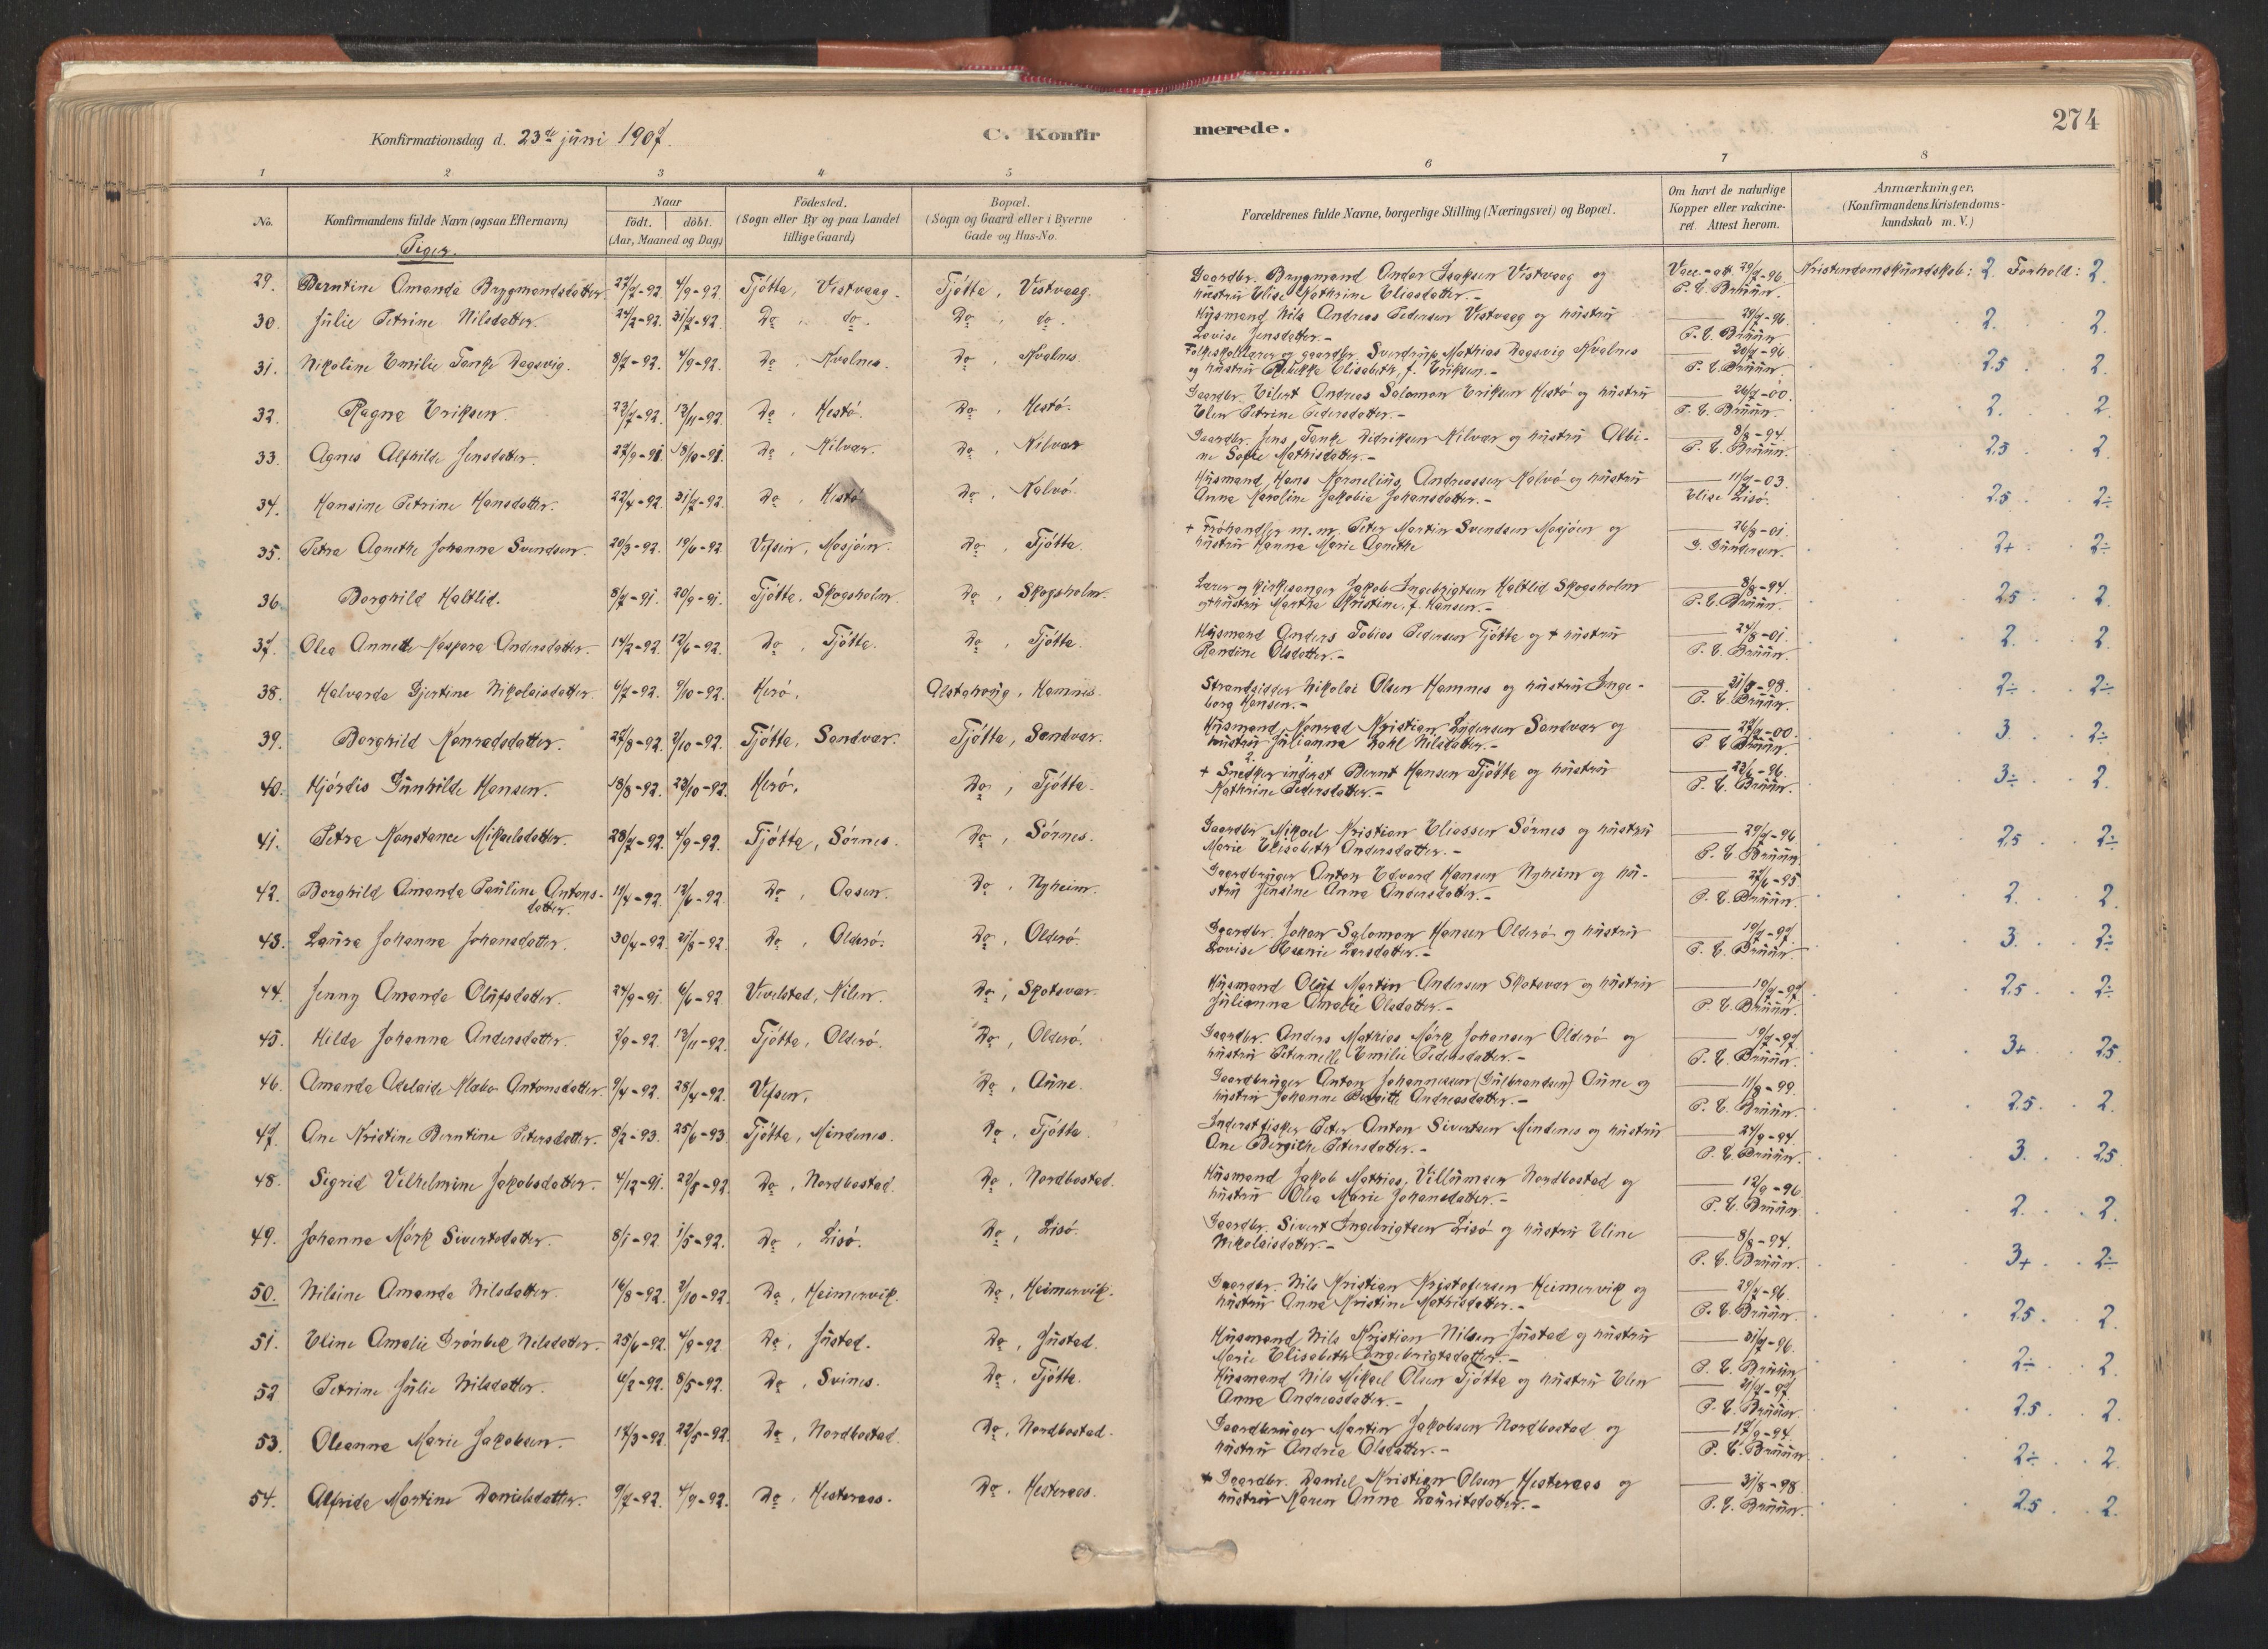 Konfirmationsdag d. 23de juni 1907.
C. Konfirmerede.
274
1 2 3 4 5 6 7 8
No.
Konfirmandens fulde Navn (ogsaa Efternavn)
Naar
født. døbt.
(Aar, Maaned og Dag)
Fødested.
(Sogn eller By og paa Landet
tillige Gaard)
Bopæl.
(Sogn og Gaard eller i Byerne
Gade og Hus-No.
Forældrenes fulde Navne, borgerlige Stilling (Næringsvei) og Bopæl.
Om havt de naturlige
Kopper eller vakcine-
ret. Attest herom.
Anmærkninger.
(Konfirmandens Kristendoms-
kundskab m. V.)
Piger.
29. Berntine Amanda Brygmandsdatter. 22/7-92. 4/9-92. Tjøtta, Vestvaag. Tjøtta, Vestvaag. Gaardbr. Brygmand Andor Isaksen Vistvaag og Vacc-att. 29/7-96 Kristendomskundskab: 2. Forhold: 2.
hustru Elise Kathrine Eliasdatter.- P. E. Brüün.
30. Julie Petrine Nilsdatter. 24/2-92. 31/7-92. Do, do. Do, do. Husmand Nils Andreas Pedersen Vistvaag og hustru 29/7-96. 2. 2.
Lovise Jensdatter.- P. E. Brüün
31. Nikoline Emilie Tanke Dagsvig. 8/7-92. 4/9-92. Do, Kvalnes. Do, Kvalnes. Folkeskolelærer og gaardbr. Sverdrup Mathias Dagsvig Kvalnes 20/7-96 2.5 2.
og hustru Rebekka Elisabeth, f. Eriksen.- P. E. Brüün.
32. Ragna Eriksen. 23/7-92. 13/11-92. Do, Hestø. Do, Hestø. Gaardbr. Eilert Andreas Salomon Eriksen Hestø og hustru 26/7-00. 2. 2.
Elen Petrine Pedersdatter.- P. E. Brüün.
33. Agnes Alfhilde Jensdatter. 27/9-91. 18/10-91. Do, Kilvær. Do, Kilvær Gaardbr. Jens Tanke Didriksen Kilvær og hustru Albi- 8/8-94. 2.5 2.
ne Sofie Mathisdatter.- P. E. Brüün.
34. Hansine Petrine Hansdatter. 22/4-92. 31/7-92. Do, Hestø Do, Kalvø. Husmand Hans Kornelius Andreassen Kalvø og hustru 11/9-03. 2.5 2÷
Anna Karoline Jakobie Johansdatter.- Elise Lisø.
35. Petra Agnethe Johanna Svendsen. 20/3-92. 19/6-92 Vefsen, Mosjøen. Do, Tjøtta. + Frøhandler m. m. Peter Martin Svendsen Mosjøen og 26/8-01. 2+ 2÷
hustru Hanna Marie Agnethe
36. Borghild Haltlid. 8/7-91. 20/9-91. Tjøtta, Skogsholm. Do, Skogsholm. Lærer og kirkesanger Jakob Ingebrigtsen Haltlid Skogsholm 8/8-94. 2.5 2.
og hustru Martha Kristine, f. Hansen.- P. E. Brüün.
37. Olea Annette Kaspara Andersdatter. 14/2-92. 12/6-92. Do, Tjøtta. Do, Tjøtta. Husmand Anders Tobias Pedersen Tjøtta og + hustru 24/8-01. 2. 2.
Randine Olsdatter.- P. E. Brüün.
38. Halvarda Gjertine Nikolaisdatter. 6/7-92. 9/10-92. Herø, Alstahoug, Hamnes. Strandsidder Nikolai Olsen Hamnes og hustru Inge- 31/8-98. 2÷ 2÷
borg Hansen.- P. E. Brüün.
39. Borghild Konradsdatter. 22/8-92. 2/10-92. Tjøtta, Sandvær. Tjøtta, Sandvær. Husmand Konrad Kristian Lydersen Sandvær og 27/7-00. 3. 2÷
hustru Julianna Dahl Nilsdatter.- P E Brüün.
40. Hjørdis Gunhilde Hansen. 18/8-92. 23/10-92. Herø, Do, Tjøtta. + Snedker inderst Bernt Hansen Tjøtta og hustru 23/6-96. 3÷ 2.
Kathrine Pedersdatter.- P. E. Brüün.
41. Petra Konstance Mikaelsdatter. 28/7-92. 4/9-92. Tjøtta, Sørnes. Do, Sørnes. Gaardbr. Mikael Kristian Eliassen Sørnes og hustru 29/7-96. 2.5 2÷
Marie Elisabeth Andersdatter.- P. E. Brüün.
42. Borghild Amanda Pauline Antons- 11/4-92. 12/6-92. Do, Aasen. Do, Nyheim. Gaardbruger Anton Edvard Hansen Nyheim og hu- 27/6-95 2. 2.
datter. stru Jensine Anna Andersdatter.- P. E. Brüün.
43. Laura Johanna Johansdatter. 30/4-92. 21/8-92. Do, Olderø. Do, Olderø. Gaardbr. Johan Salomon Hansen Olderø og hustru 19/7-97. 3. 2÷
Lovise Marie Larsdatter.- P. E. Brüün.
44. Jenny Amanda Olufsdatter. 24/9-91. 6/6-92 Vevelstad, Kilen. Do, Skotsvær. Husmand Oluf Martin Andersen Skotsvær og hustru 19/7-97 2.5 2÷
Julianna Amalie Olsdatter.- P. E. Brüün.
45. Hilda Johanna Andersdatter. 2/9-92. 13/11-92. Tjøtta, Olderø. Do, Olderø. Gaardbr. Anders Mathias Mørk Johansen Olderø og 19/7-97. 3+ 2.5
hustru Peternelle Emilie Pedersdatter.- P. E. Brüün.
46. Amanda Adelaide Klabo Antonsdatter. 9/4-92. 28/4-92. Vefsen, Do, Aune. Gaardbruger Anton Johannessen (Gulbrandsen) Aune og 11/8-99. 2.5 2.
hustru Johanne Birgitte Andreasdatter.- P. E. Brüün.
47. Ane Kristine Berntine Petersdatter. 8/2-93. 25/6-93. Tjøtta, Mindenes. Do, Tjøtta. Inderst fisker Peter Anton Sivertsen Mindenes og hustru 24/9-94. 3. 2.5
Ane Bergithe Petersdatter.- P. E. Brüün.
48. Sigrid Vilhelmine Jakobsdatter. 4/12-91. 22/5-92. Do, Nordbostad. Do, Nordbostad. Husmand Jakob Mathias Villumsen Nordbostad og 12/9-96. 2. 2.
hustru Olea Marie Johansdatter.- P. E. Brüün.
49. Johanna Mørk Sivertsdatter. 8/1-92. 1/5-92. Do, Lisø. Do, Lisø. Gaardbr. Sivert Ingebrigtsen Lisø og hustru Eline 8/8-94. 3+ 2÷
Nikolaisdatter.- P. E. Brüün.
50. Nilsine Amanda Nilsdatter. 16/8-92. 2/10-92. Do, Heimervik. Do, Heimervik. Gaardbr. Nils Kristian Kristofersen Heimervik og 29/7-96. 2.5 2.
hustru Anna Kristine Mathisdatter.- P. E. Brüün.
51. Eline Amalie Grønbek Nilsdatter. 25/6-92. 4/9-92. Do, Justad. Do, Justad. Husmand Nils Kristian Nilsen Justad og hustru 31/7-96. 2÷ 2.
Marie Elisabeth Ingebrigtsdatter.- P. E. Brüün
52 Petrine Julie Nilsdatter. 6/2-92. 8/5-92. Do, Svines. Do, Tjøtta. Husmand Nils Mikael Olsen Tjøtta og hustru Elen 21/7-97 2.5 2.
Anna Andreasdatter.- P. E. Brüün.
53. Oleanna Marie Jakobsen. 17/3-92. 22/5-92. Do, Nordbostad. Do, Nordbostad. Gaardbruger Martin Jakobsen Nordbostad og 17/9-94. 2÷ 2.
hustru Andrea Olsdatter.- P. E. Brüün.
54. Alfrida Martine Danielsdatter. 9/7-92. 4/9-92. Do, Hesteraas. Do, Hesteraas. + Gaardbr. Daniel Kristian Olsen Hesteraas og 31/8-98. 2.5 2.
hustru Maren Anna Lauritsdatter.- P. E. Brüün.